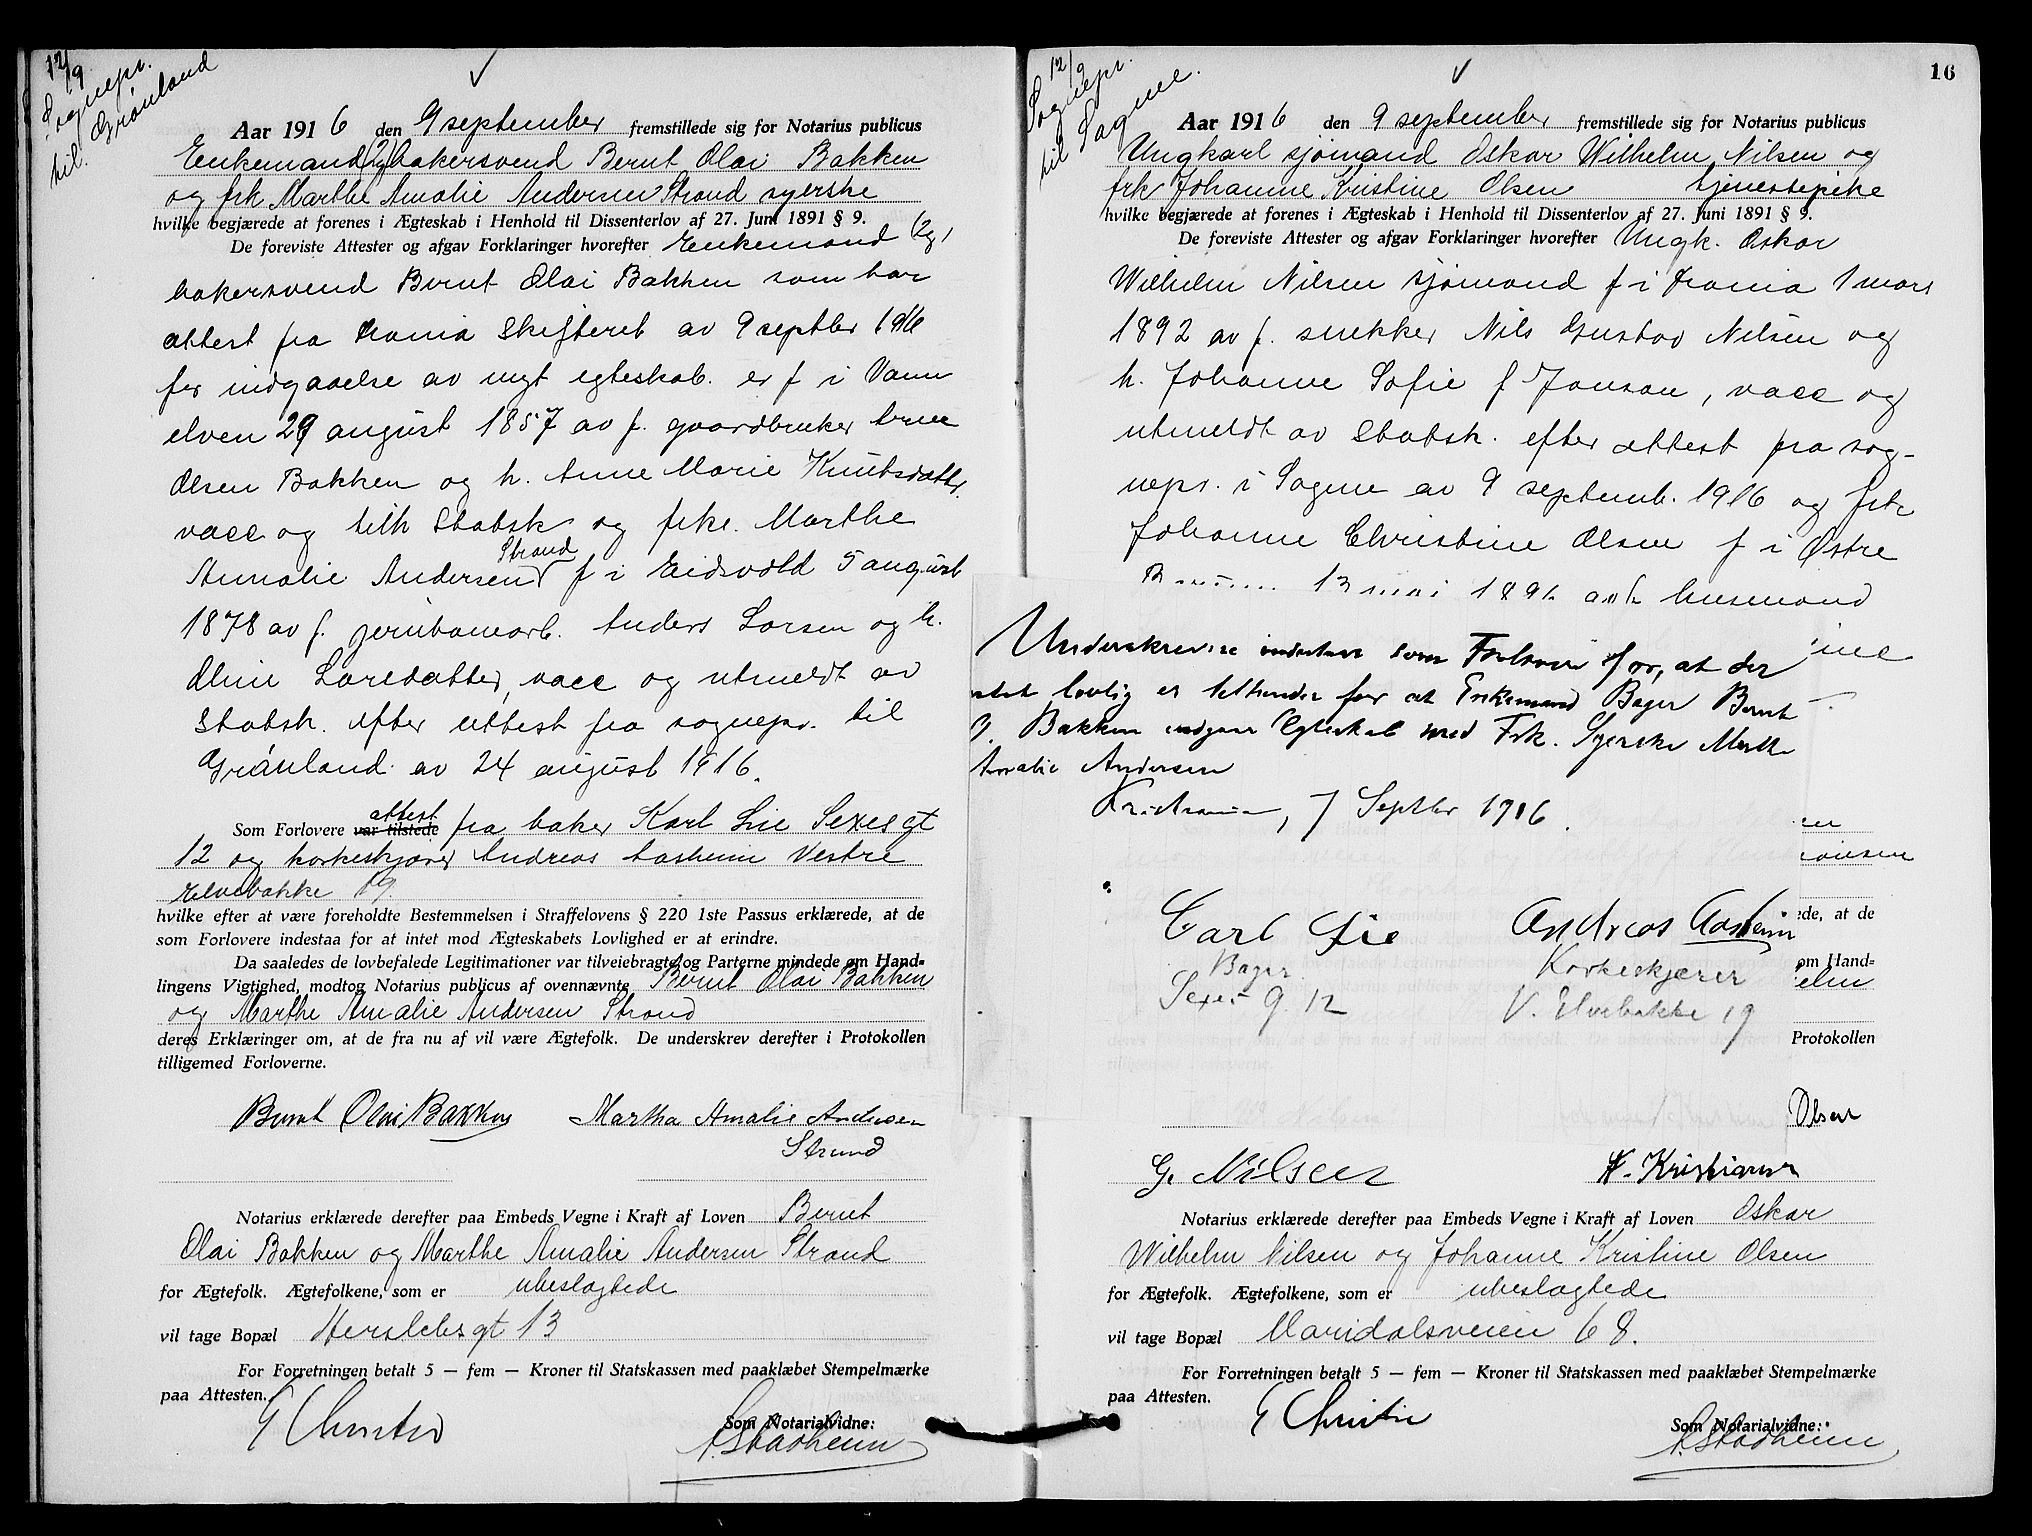 12/9
Sognepr.
til Grønland
Aar 1916 den 9 september fremstillede sig for Notarius publicus
Enkemand (2g) bakersvend Bernt Olai Bakken
og frk Marthe Amalie Andersen Strand syerske
hvilke begjærede at forenes i Ægteskab i Henhold til Dissenterlov af 27. Juni 1891 § 9.
De foreviste Attester og afgav Forklaringer hvorefter Enkemand (2g)
bakersvend Bernt Olai Bakken som har
attest fra Krania Skifteret av 9 septbr 1916
for indgaaelse av nyt egteskab. er f i Vann
elven 29 august 1857 av f. gaardbruker Arne
Olsen Bakken og h. Anne Marie Knutsdatter.
vacc og tilh Statsk og frk. Marthe
Amalie Andersen Strand f i Eidsvold 5 august
1878 av f. jernbanearb. Anders Larsen og h.
Oline Larsdatter, vacc og utmeldt av
Statsk. efter attest fra sognepr. til
Grønland av 24 august 1916.
Som Forlovere var tilstede attest fra baker Karl Lie Sexesgt
12 og korkeskjærer Andreas Aasheim Vestre
Elvebakke 19.
hvilke efter at være foreholdte Bestemmelsen i Straffelovens § 220 1ste Passus erklærede, at de
som Forlovere indestaa for at intet mod Ægteskabets Lovlighed er at erindre.
Da saaledes de lovbefalede Legitimationer var tilveiebragte og Parterne mindede om Hand-
lingens Vigtighed, modtog Notarius publicus af ovennævnte Bernt Olai Bakken
og Marthe Amalie Andersen Strand
deres Erklæringer om, at de fra nu af vil være Ægtefolk. De underskrev derefter i Protokollen
tilligemed Forloverne.
Bernt Olai Bakken Martha Amalie Andersen
Strand
Notarius erklærede derefter paa Embeds Vegne i Kraft af Loven Bernt
Olai Bakken og Marthe Amalie Andersen Strand
for Ægtefolk. Ægtefolkene, som er ubeslagtede
vil tage Bopæl Herslebsgt 13
For Forretningen betalt 5 — fem — Kroner til Statskassen med paaklæbet Stempelmærke
paa Attesten.
Som Notarialvidne:
G Christie
Stadheim
16
12/9
Sognepr.
til Sagene.
Aar 1916 den 9 september fremstillede sig for Notarius publicus
Ungkarl sjømand Oskar Wilhelm Nilsen og
frk Johanne Kristine Olsen tjenestepike
hvilke begjærede at forenes i Ægteskab i Henhold til Dissenterlov af 27. Juni 1891 § 9.
De foreviste Attester og afgav Forklaringer hvorefter Ungk. Oskar
Wilhelm Nilsen sjømand f i Krania 1 mars
1892 av f. snekker Nils Gustav Nilsen og
h. Johanne Sofie f Jonson, vacc og
utmeldt av Statsk. efter attest fra sog-
nepr. i Sagene av 9 septemb. 1916 og frk
Johanne Christine Olsen f i Østre
13 mai 189 husmand
Underskrevne indestaar som Forlovere for, at der
intet lovlig er tilhinder for at Enkemand Bager Bernt
O. Bakken indgaar Egteskab med Frk. Syerske Marthe
Amalie Andersen
Kristiania, 7 Septbr 1916.
Carl Lie Andreas Aasheim
Bager Korkeskjærer
Sexes g. 12 V. Elvebakke 19
ede, at de
om Hand-
elm
Protokollen
Olsen
G. Nilsen K. Kristiansen
Notarius erklærede derefter paa Embeds Vegne i Kraft af Loven Oskar
Wilhelm Nilsen og Johanne Kristine Olsen
for Ægtefolk. Ægtefolkene, som er ubeslagtede
vil tage Bopæl Maridalsveien 68.
For Forretningen betalt 5 — fem — Kroner til Statskassen med paaklæbet Stempelmærke
paa Attesten.
Som Notarialvidne:
G Christie
Stadheim